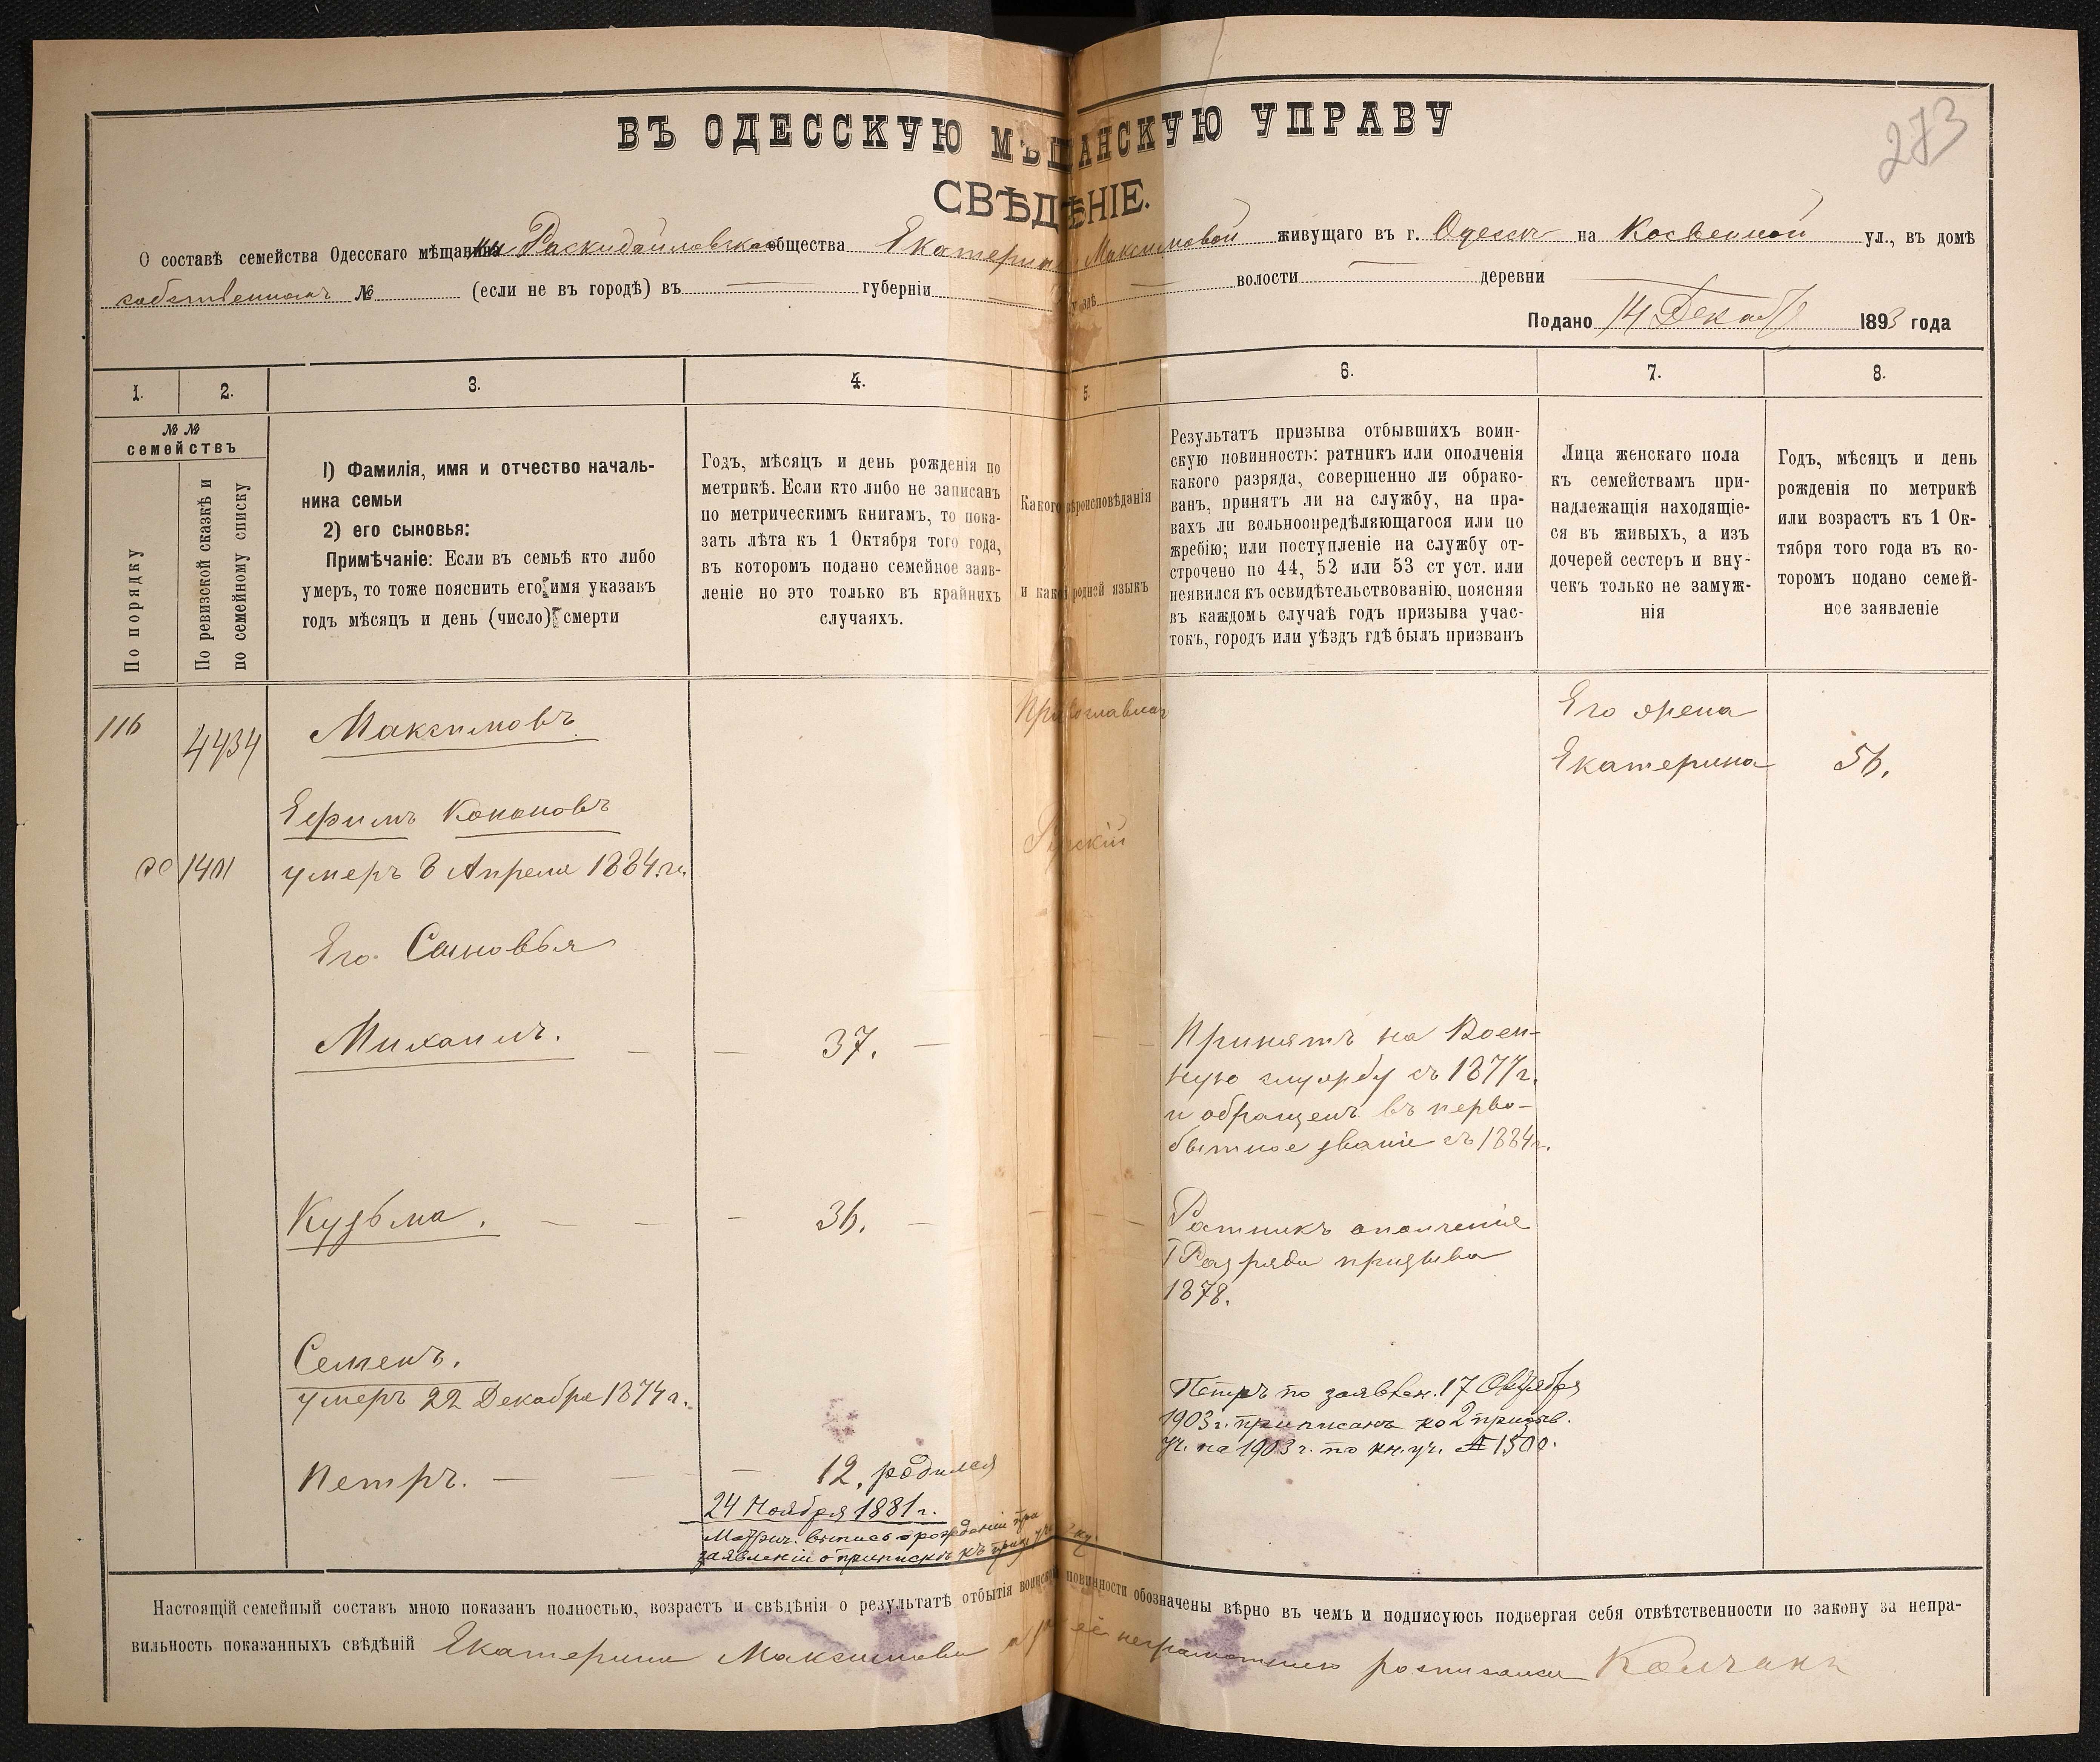 273
ВЪ ОДЕССКУЮ МѢЩАНСКУЮ УПРАВУ
СВѢДѢНІЕ.
О составѣ семейства Одесскаго мѣщанина Раскидайловскаго общества Екатерины Максимовой живущаго въ г. Одессѣ на Косвенной ул., въ домѣ
собственномъ № (если не въ городѣ) въ — губерніи — уѣздѣ — волости — деревни —
Подано 14 Декаб 1893 года
1. 2. 3. 4. 5. 6. 7. 8.
№ №
семействъ
По порядку
По ревизской сказкѣ и
по семейному списку
1) Фамилія, имя и отчество началь-
ника семьи
2) его сыновья:
Примѣчаніе: Если въ семьѣ кто либо
умеръ, то тоже пояснить его имя указавъ
годъ мѣсяцъ и день (число) смерти
Годъ, мѣсяцъ и день рожденія по
метрикѣ. Если кто либо не записанъ
по метрическимъ книгамъ, то пока-
зать лѣта къ 1 Октября того года,
въ которомъ подано семейное заяв-
леніе но это только въ крайнихъ
случаяхъ.
Какого вѣроисповѣданія
и какой родней языкъ
Результатъ призыва отбывшихъ воин-
скую повинность: ратникъ или ополченія
какого разряда, совершенно ли обрако-
ванъ, принятъ ли на службу, на пра-
вахъ ли вольноопредѣляющагося или по
жребію; или поступленіе на службу от-
строчено по 44, 52 или 53 ст уст. или
неявился къ освидѣтельствованію, поясняя
въ каждомъ случаѣ годъ призыва учас-
токъ, городъ или уѣздъ гдѣ былъ призванъ
Лица женскаго пола
къ семействамъ при-
надлежащія находящіе-
ся въ живыхъ, а изъ
дочерей сестеръ и вну-
чекъ только не замуж-
нія
Годъ, мѣсяцъ и день
рожденія по метрикѣ
или возрастъ къ 1 Ок-
тября того года въ ко-
торомъ подано семей-
ное заявленіе
116 4434 Максимовъ Православная Его жена
Екатерина 56.
Ефимъ Кононовъ Русскій
1401 умеръ 8 Апреля 1884 г.
Его Сыновья
Михаилъ. — — 37. — Принятъ на Воен-
ную службу съ 1877 г.
и обращенъ въ перво-
бытное званіе съ 1884 г.
Кузьма. — — — 36. — Ратникъ ополченіе
I Разряда призыва
1878.
Семенъ.
умеръ 22 Декабря 1874 г.
Петръ по заявлен. 17 Октября
1903 г. приписанъ ко 2 призыв.
уч. на 1903 г. по кн. уч. № 1500.
Петръ. — — — 12. родился
24 Ноября 1881 г.
Метрич. выпись о рожденіи при
заявленіи о припискѣ къ приз. участку.
Настоящій семейный составъ мною показанъ полностью, возрастъ и свѣдѣнія о результатѣ отбытія воинской повинности обозначены вѣрно въ чемъ и подписуюсь подвергая себя отвѣтственности по закону за непра-
вильность показанныхъ свѣдѣній Екатерина Максимова а за её неграмотную росписался Колчакъ